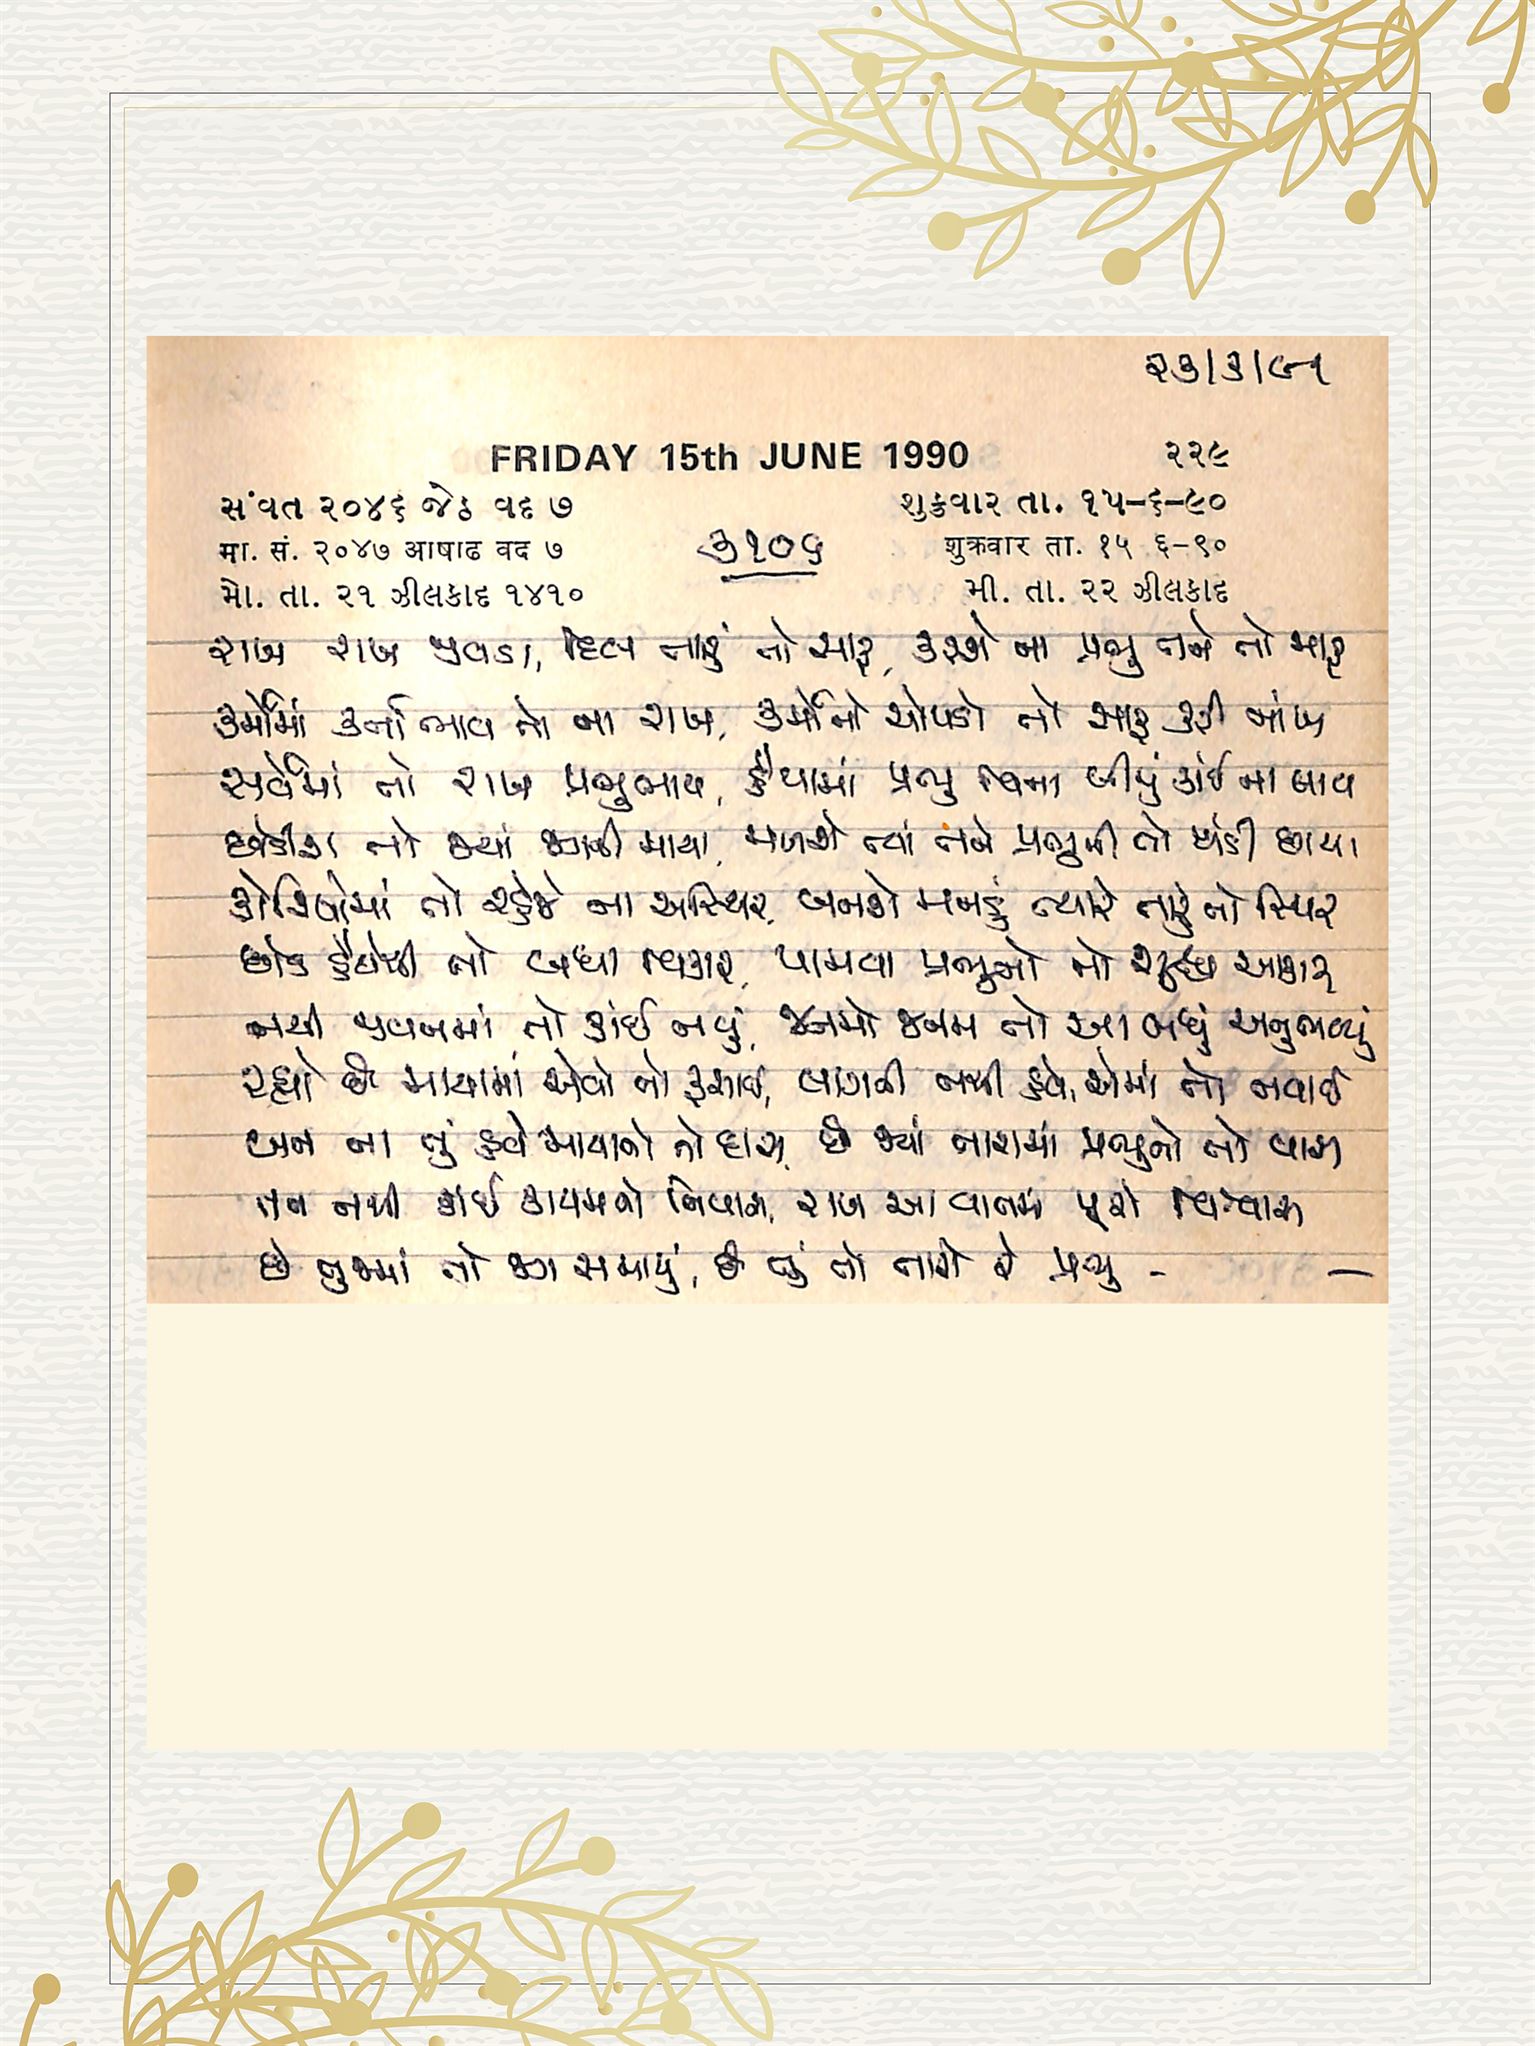 ૨૩/૩/૯૧
FRIDAY 15th JUNE 1990 ૨૨૯
સંવત ૨૦૪૬ જેઠ વદ ૭ શુક્રવાર તા. ૧૫-૬-૯૦
मा. सं. २०४७ आषाढ वद ७ ૩૧૦૬ शुक्रवार ता. १५ ६-९०
મો. તા. ૨૧ ઝીલકાદ ૧૪૧૦ મી. તા. ૨૨ ઝીલકાદ
રાખ રાખ જીવડા, દિલ તારું તો સાફ, કરશે ના પ્રભુ તને તો માફ
કર્મોમાં કર્તાભાવ તો ના રાખ, કર્મોનો ચોપડો તો સાફ કરી નાંખ
સર્વેમાં તો રાખ પ્રભુભાવ, હૈયામાં પ્રભુ વિના બીજું કાંઈ ના લાવ
છોડીશ તો જ્યાં જૂઠી માયા, મળશે ત્યાં તને પ્રભુની તો મીઠી છાયા
કોશિશોમાં તો રહેજે ના અસ્થિર, બનશે મનડું ત્યારે તારું તો સ્થિર
છોડ હૈયેથી તો બધા વિકાર, પામવા પ્રભુનો તો શુદ્ધ આકાર
નથી જીવનમાં તો કાંઈ નવું, જનમો જનમ તો આ બધું અનુભવ્યું
રહ્યો છે માયામાં એવો તો રૂંધાઈ, લાગતી નથી હવે, એમાં તો નવાઈ
બન ના તું હવે માયાનો તો દાસ, છે જ્યાં તારામાં પ્રભુનો તો વાસ
તન નથી કાંઈ કાયમનો નિવાસ, રાખ આ વાતમાં પૂરો વિશ્વાસ
છે તુજમાં તો જગ સમાયું, છે તું તો તારો રે પ્રભુ -